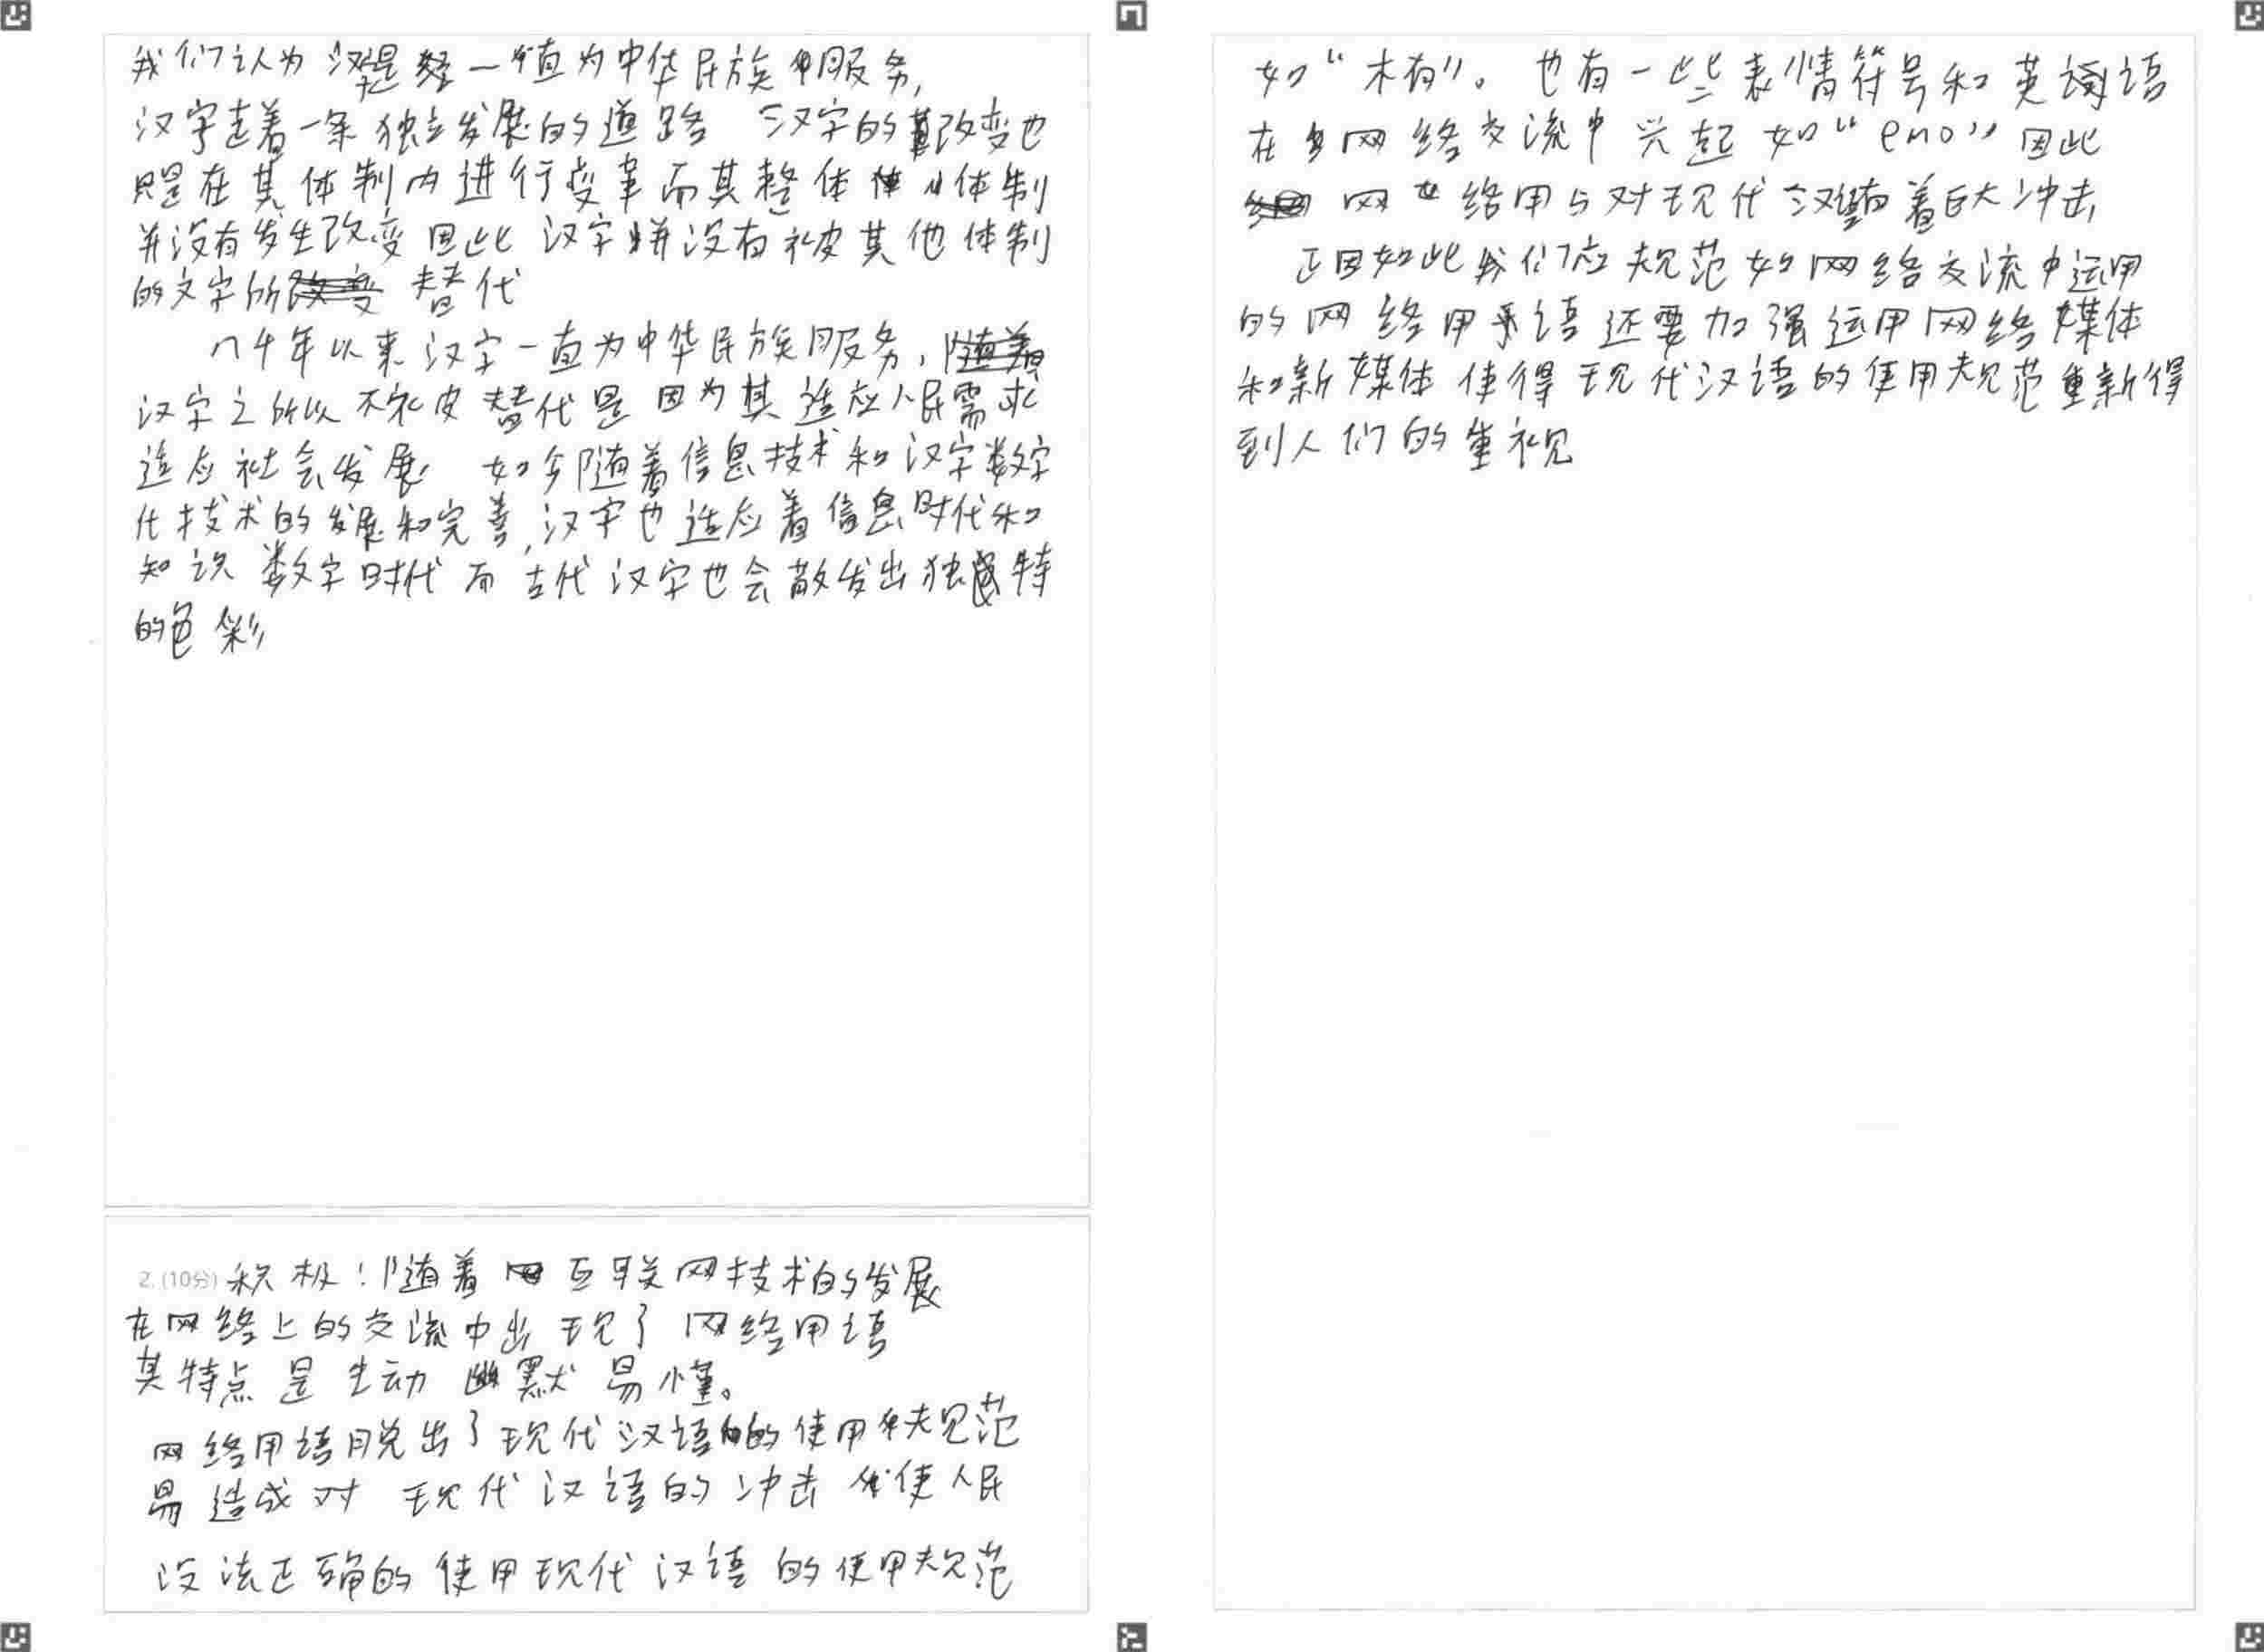 我们认为汉字是一直为中华民族服务,
汉字走着一条独立发展的道路 汉字的改变也
只是在其体制内进行变革而其整体体制
并没有发生改变因此汉字并没有被其他体制
的文字所替代
几千年以来汉字一直为中华民族服务,
汉字之所以不被替代是因为其适应人民需求
适应社会发展 如今随着信息技术和汉字数字
化技术的发展和完善,汉字也适应着信息时代和
知识数字时代而古代汉字也会散发出独特
的色彩
2. (10分) 积极:随着互联网技术的发展
在网络上的交流中出现了网络用语
其特点是生动幽默易懂。
网络用语脱出了现代汉语的使用规范
易造成对现代汉语的冲击使人民
没法正确的使用现代汉语的使用规范
如“木有”。也有一些表情符号和英语
在网络交流中兴起如“emo”因此
网络用与对现代汉语有着巨大冲击
正因如此我们应规范如网络交流中运用
的网络用语还要加强运用网络媒体
和新媒体使得现代汉语的使用规范重新得
到人们的重视